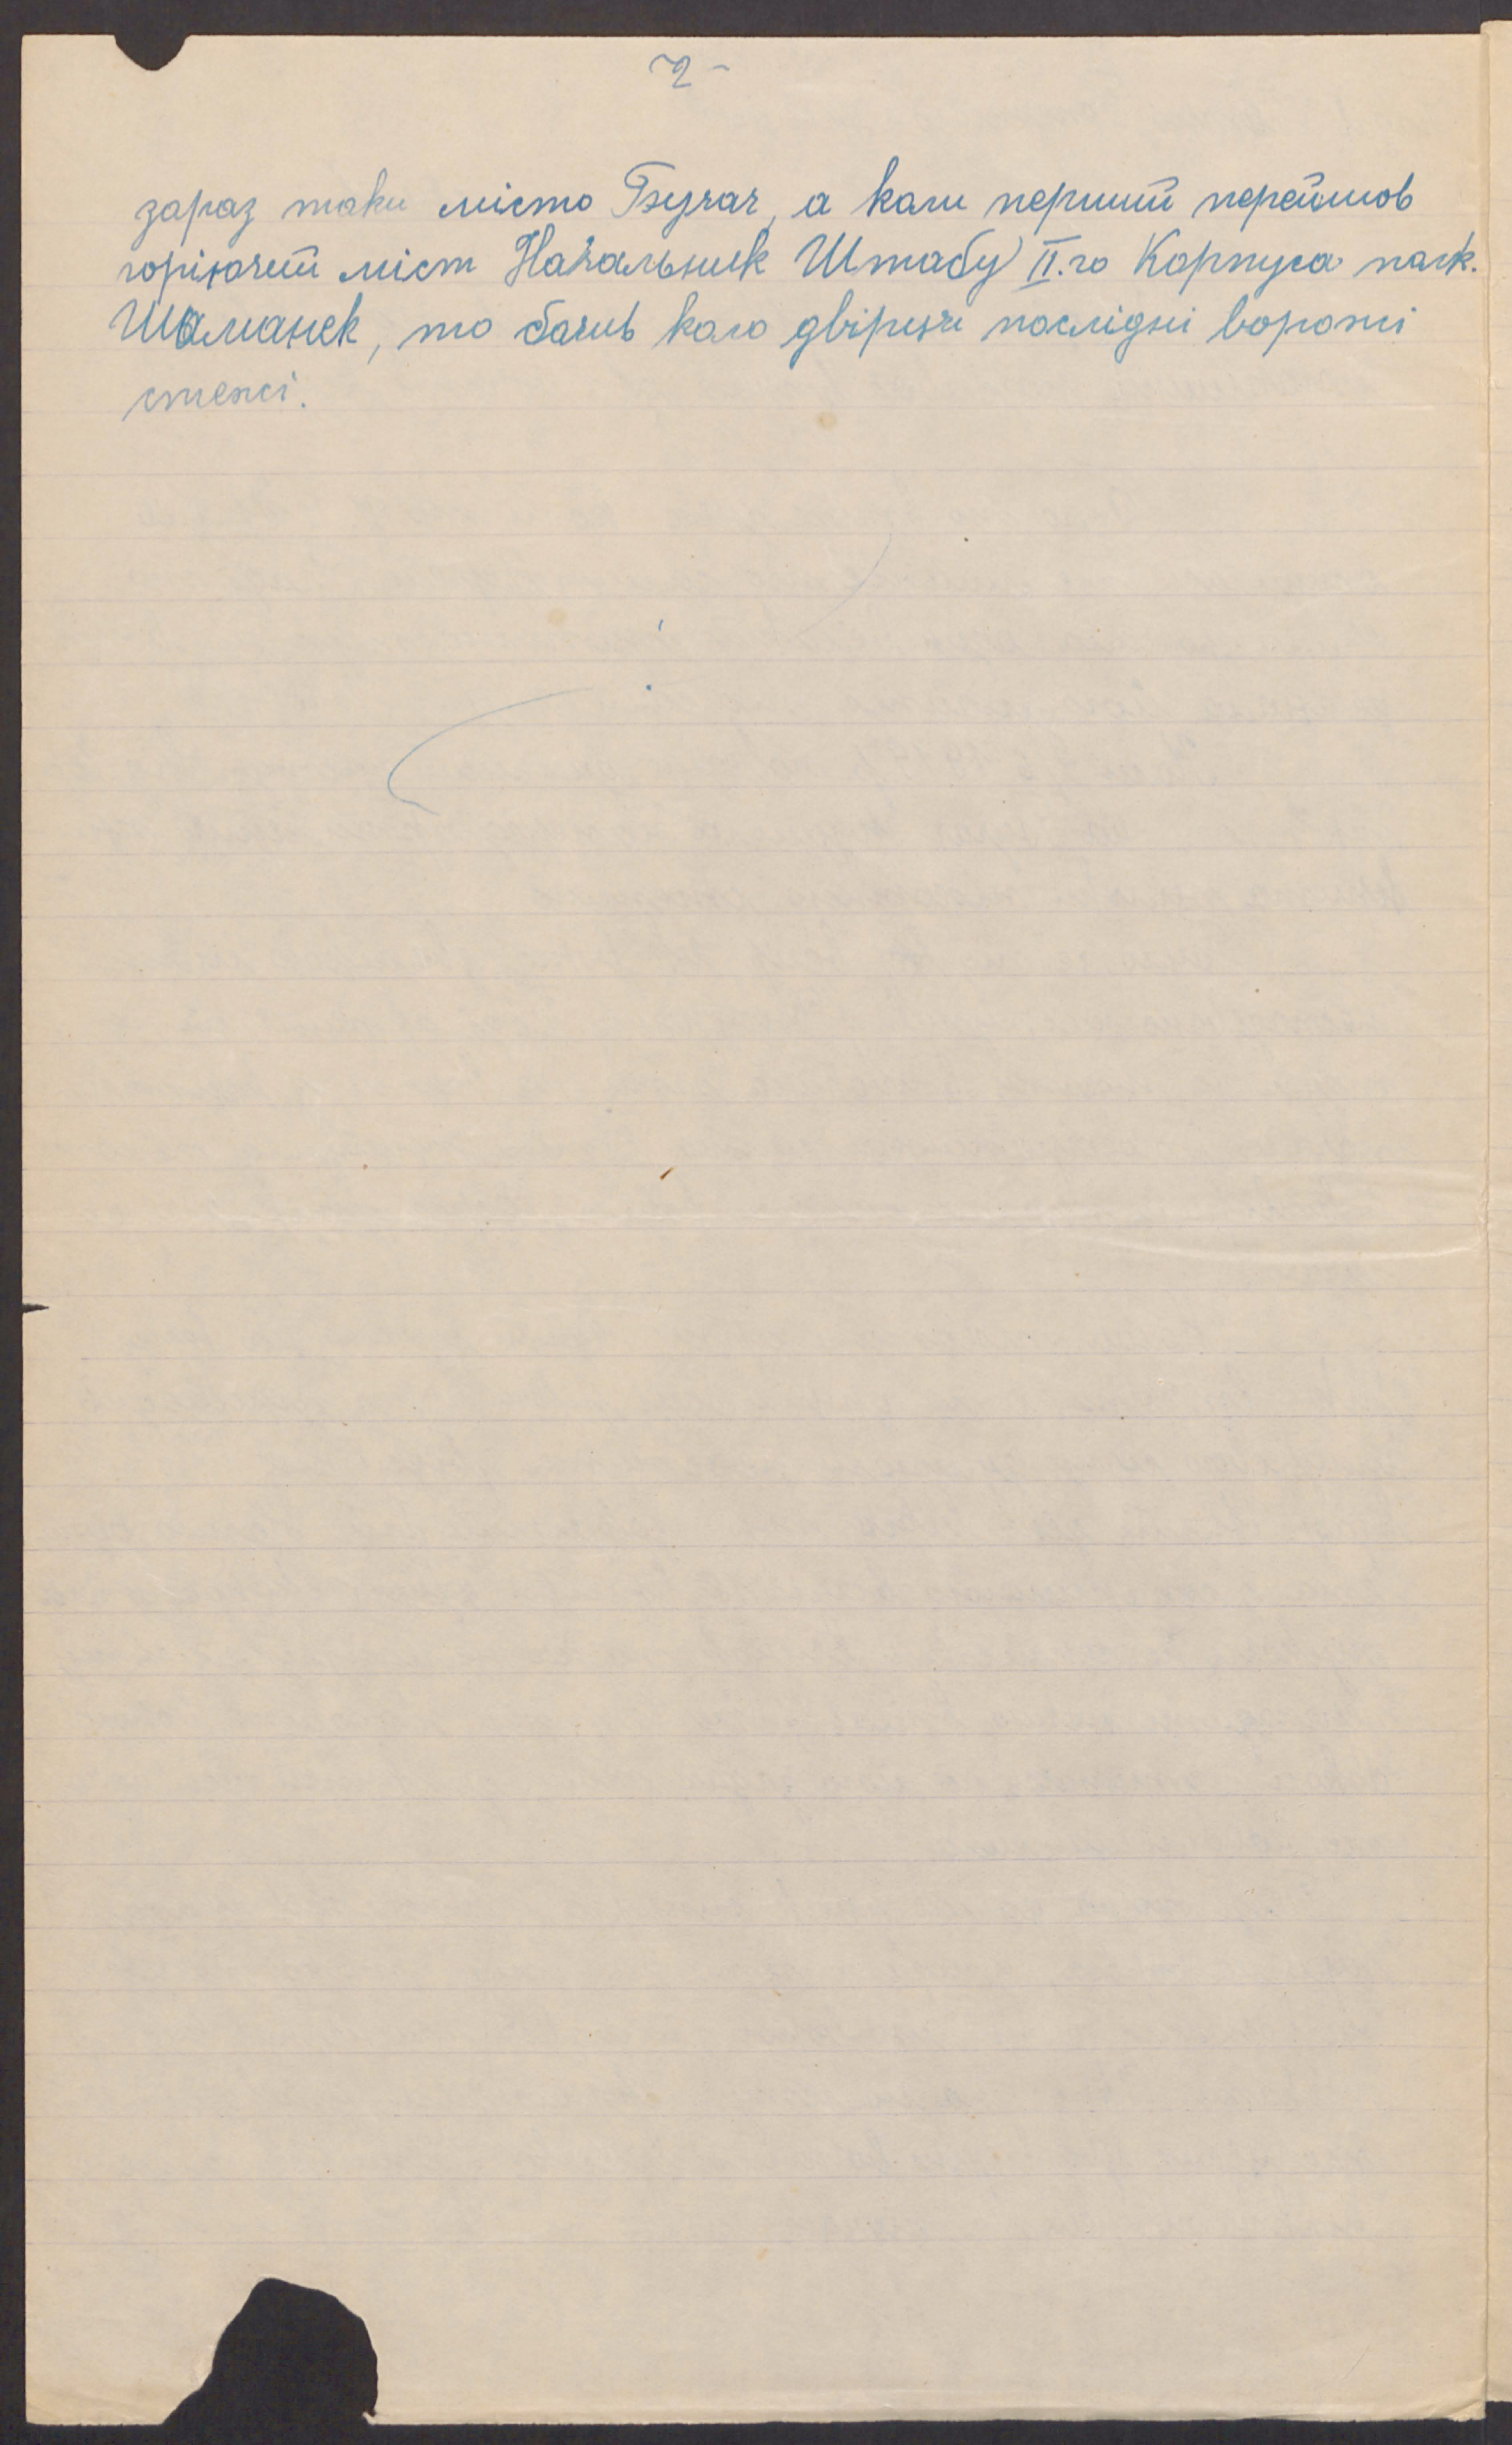 2-
зараз таки місто Бучач, а коли перший перейшов
горіючий міст Начальник Штабу II.го Корпуса полк.
Шаманек, то бачив коло двірця послідні ворожі
стежі.